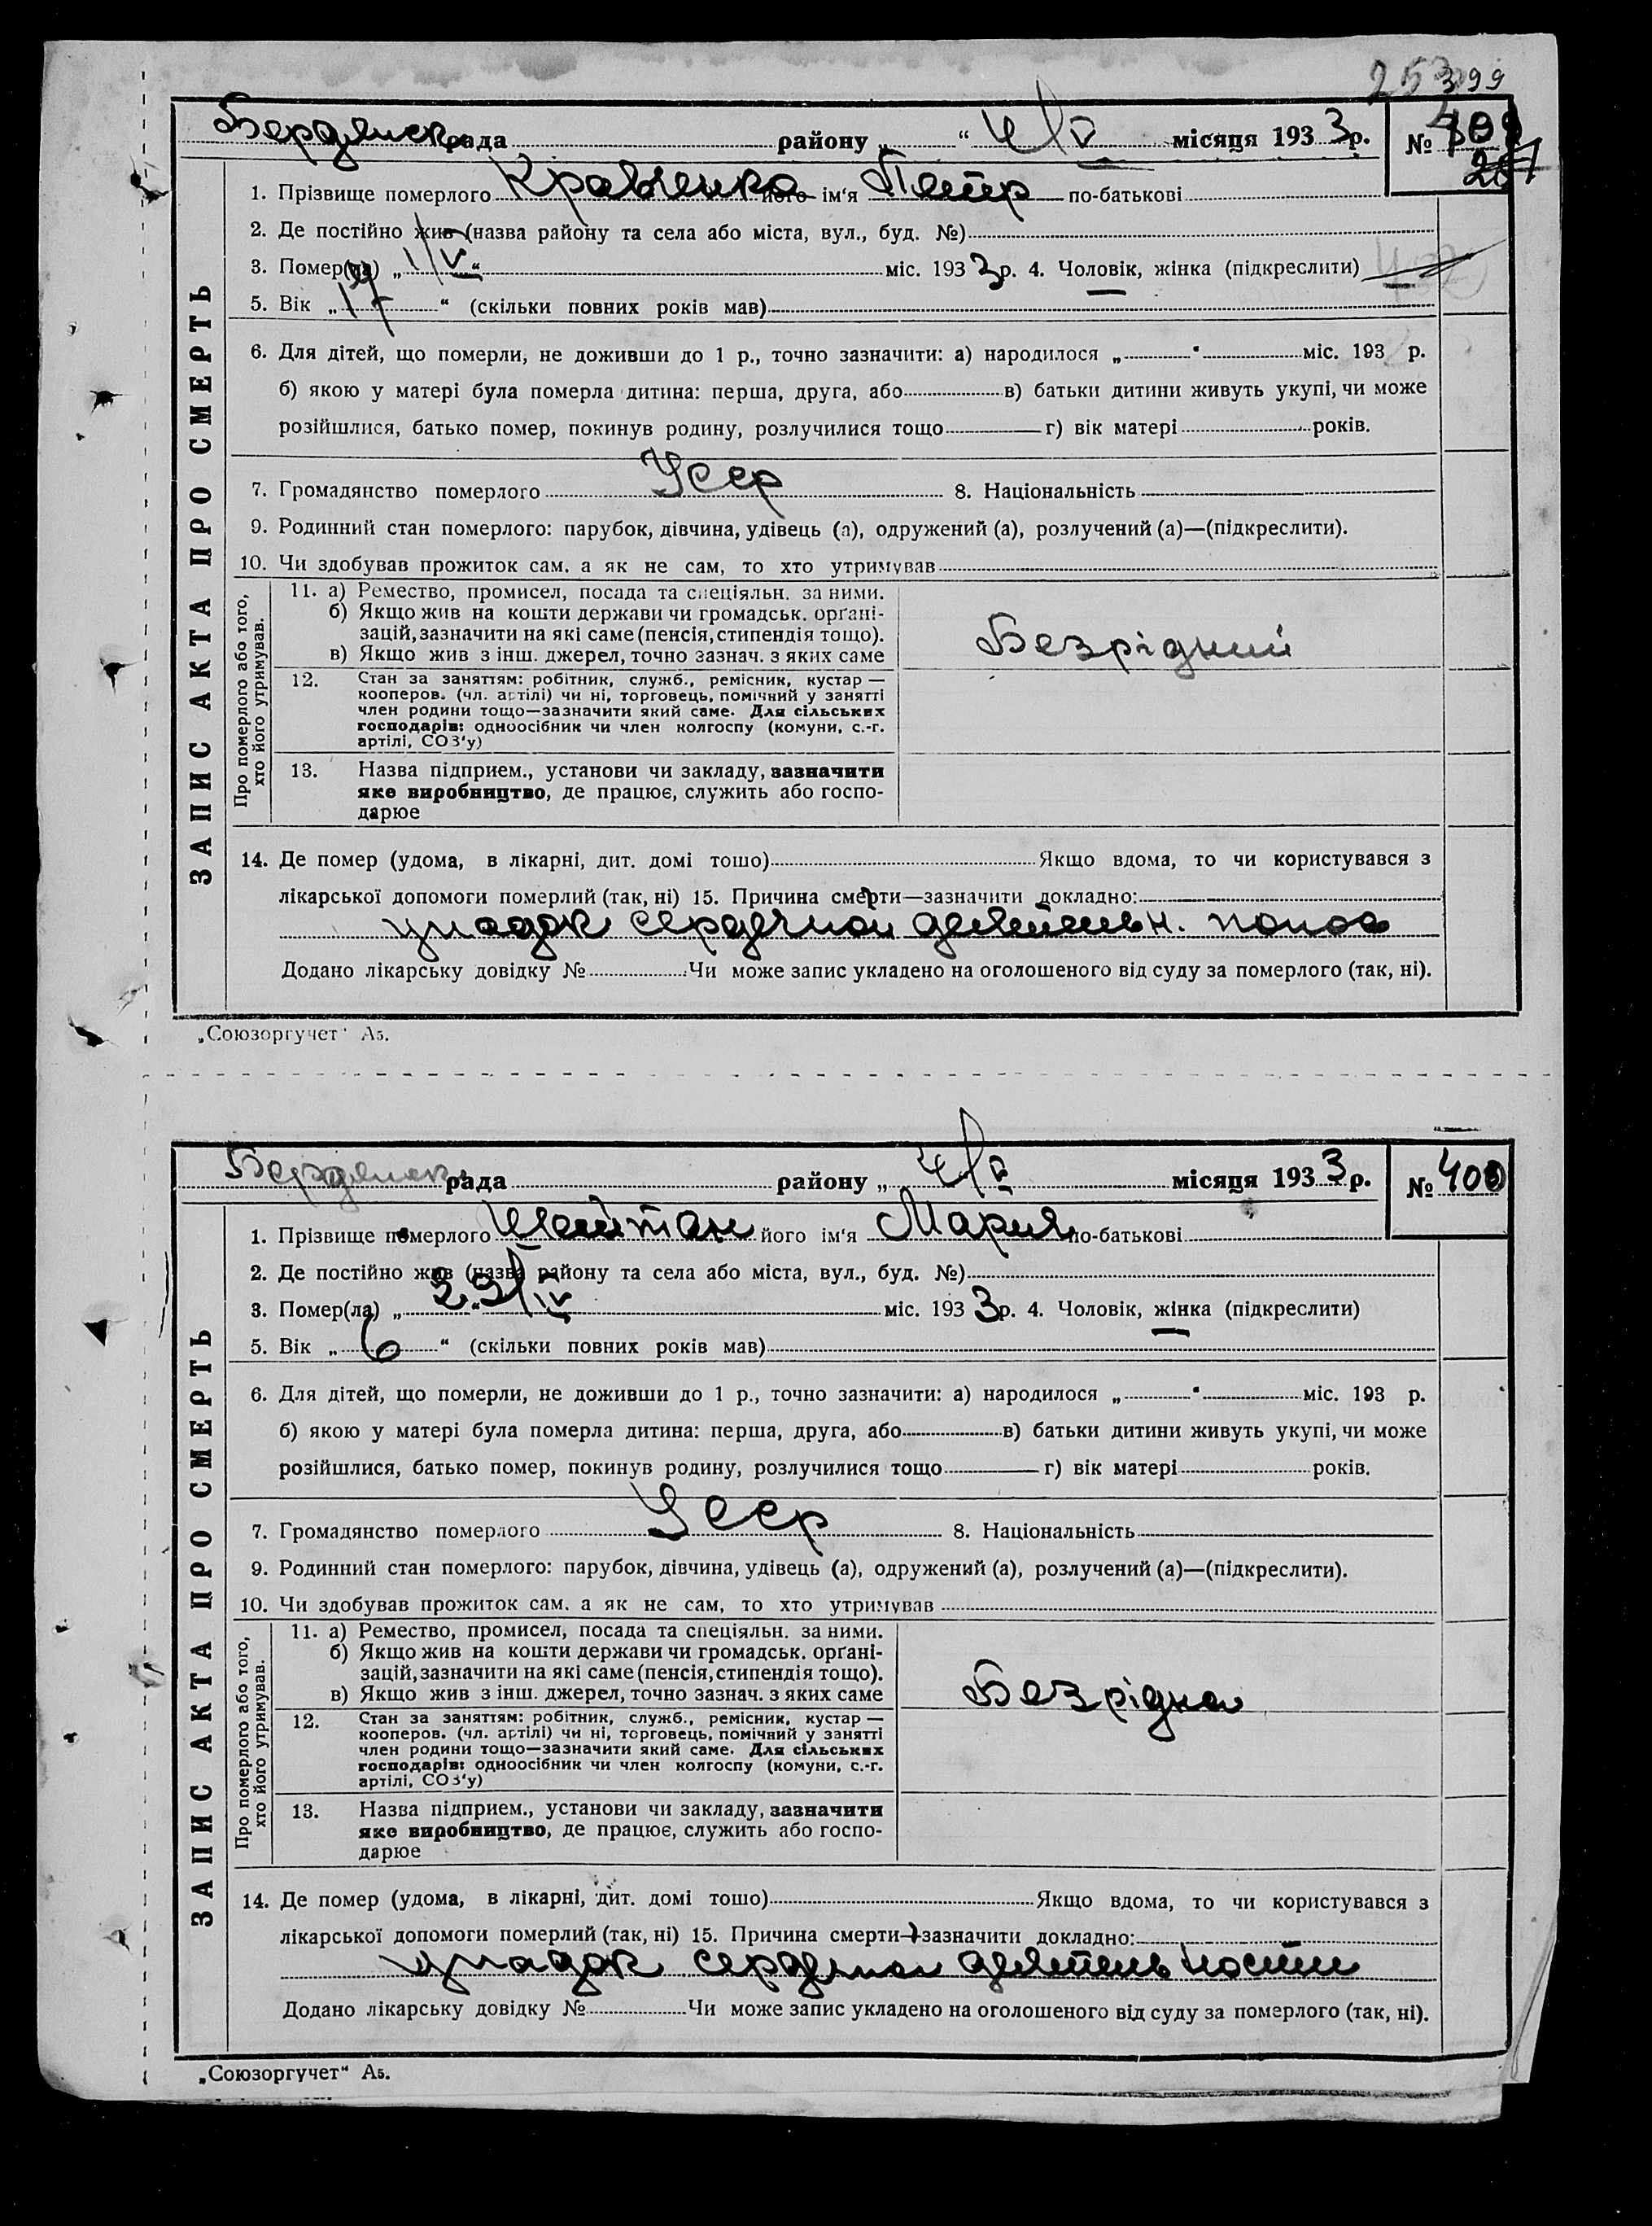 399
Бердянск рада району „ “ 4/V місяця 1933 р. №
1. Прізвище померлого Кравченко його ім‘я Петр по-батькові
2. Де постійно жив (назва району та села або міста, вул., буд. №)
3. Помер(ла) „ 1/V “ міс. 1933 р. 4. Чоловік, жінка (підкреслити)
5. Вік „ “ (скільки повних років мав)
6. Для дітей, що померли, не доживши до 1 р., точно зазначити: а) народилося „ “ міс. 193 р.
б) якою у матері була померла дитина: перша, друга, або в) батьки дитини живуть укупі, чи може
розійшлися, батько помер, покинув родину, розлучилися тощо г) вік матері років.
7. Громадянство померлого Уеер 8. Національність
9. Родинний стан померлого: парубок, дівчина, удівець (а), одружений (а), розлучений (а)—(підкреслити).
10. Чи здобував прожиток сам, а як не сам, то хто утримував
Про померлого або того,
хто його утримував.
11. а) Ремество, промисел, посада та спеціяльн. за ними.
б) Якщо жив на кошти держави чи громадськ. орґані-
зацій, зазначити на які саме (пенсія, стипендія тощо).
в) Якщо жив з інш. джерел, точно зазнач. з яких саме
Безрідний
12. Стан за заняттям: робітник, служб., ремісник, кустар —
кооперов. (чл. артілі) чи ні, торговець, помічний у занятті
член родини тощо—зазначити який саме. Для сільських
господарів: одноосібник чи член колгоспу (комуни, с.-г.
артілі, СОЗ‘у)
13. Назва підприєм., установи чи закладу, зазначити
яке виробництво, де працює, служить або госпо-
дарює
14. Де помер (удома, в лікарні, дит. домі тошо) Якщо вдома, то чи користувався з
лікарської допомоги померлий (так, ні) 15. Причина смерти—зазначити докладно:
упадок сердечной деятельн. понос
Додано лікарську довідку № Чи може запис укладено на оголошеного від суду за померлого (так, ні).
ЗАПИС АКТА ПРО СМЕРТЬ
„Союзоргучет“ А5.
Бердянск рада району „ 4/V місяця 1933 р. № 400
1. Прізвище померлого його ім‘я Мария по-батькові
2. Де постійно жив (назва району та села або міста, вул., буд. №)
3. Помер(ла) „ “ /IV міс. 1933 р. 4. Чоловік, жінка (підкреслити)
5. Вік „ 6 “ (скільки повних років мав)
6. Для дітей, що померли, не доживши до 1 р., точно зазначити: а) народилося „ “ міс. 193 р.
б) якою у матері була померла дитина: перша, друга, або в) батьки дитини живуть укупі, чи може
розійшлися, батько помер, покинув родину, розлучилися тощо г) вік матері років.
7. Громадянство померлого Уеер 8. Національність
9. Родинний стан померлого: парубок, дівчина, удівець (а), одружений (а), розлучений (а)—(підкреслити).
10. Чи здобував прожиток сам, а як не сам, то хто утримував
Про померлого або того,
хто його утримував.
11. а) Ремество, промисел, посада та спеціяльн. за ними.
б) Якщо жив на кошти держави чи громадськ. орґані-
зацій, зазначити на які саме (пенсія, стипендія тощо).
в) Якщо жив з інш. джерел, точно зазнач. з яких саме
Безрідна
12. Стан за заняттям: робітник, служб., ремісник, кустар —
кооперов. (чл. артілі) чи ні, торговець, помічний у занятті
член родини тощо—зазначити який саме. Для сільських
господарів: одноосібник чи член колгоспу (комуни, с.-г.
артілі, СОЗ‘у)
13. Назва підприєм., установи чи закладу, зазначити
яке виробництво, де працює, служить або госпо-
дарює
14. Де помер (удома, в лікарні, дит. домі тошо) Якщо вдома, то чи користувався з
лікарської допомоги померлий (так, ні) 15. Причина смерти—зазначити докладно:
упадок сердечной деятельности
Додано лікарську довідку № Чи може запис укладено на оголошеного від суду за померлого (так, ні).
ЗАПИС АКТА ПРО СМЕРТЬ
„Союзоргучет“ А5.